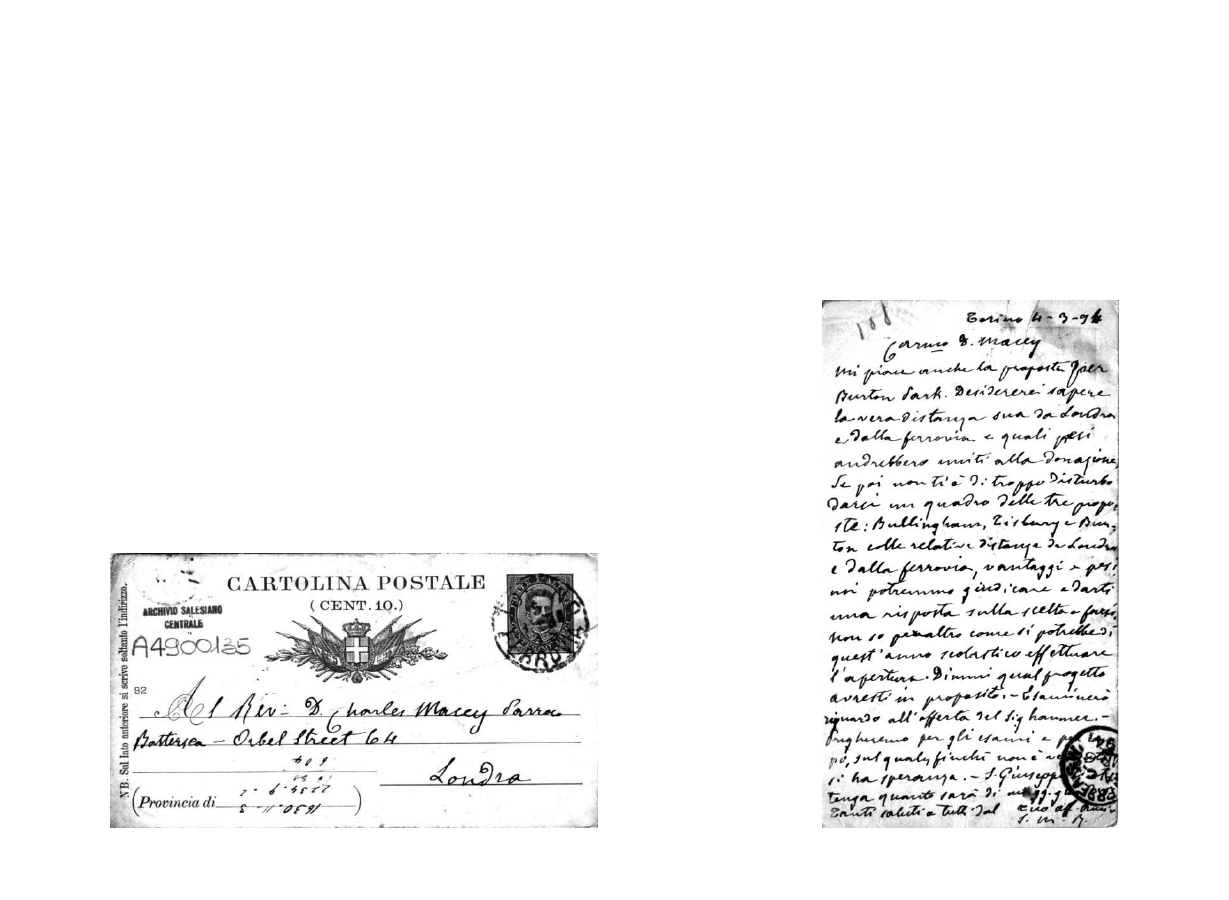 CARTOLINA POSTALE
(CENT. 10.)
ARCHIVIO SALESIANO
CENTRALE
A4900135
N.B. Sul lato anteriore si scrive soltanto l'indirizzo.
92
Al Rev: D. Charles Macey Parroco
Battersea - Orbel Street 64
Londra
(Provincia di )
108
Torino 4-3-94
Carmo D. Macey
Mi piace anche la proposta per
Burton Park. Desidererei sapere
la vera distanza sua da Londra
e dalla ferrovia e quali pesi
andrebbero uniti alla donazione,
Se poi non ti è di troppo disturbo
darci un quadro delle tre propo-
ste: Bullingham, Tisbury e Bur-
ton colle relative distanze da Londra
e dalla ferrovia, vantaggi e pesi
noi potremmo giudicare e darti
una risposta sulla scelta a farsi,
non so peraltro come si potrebbe di
quest'anno scolastico effettuare
l'apertura. Dimmi qual progetto
avresti in proposito. - Esaminerò
riguardo all'offerta del Sig hanmer. -
Pregheremo per gli esami e per
po, sul quale finchè non è
si ha speranza. - S. Giuseppe
tenga quanto sarà di magg.
Tanti saluti a tutti dal tuo af